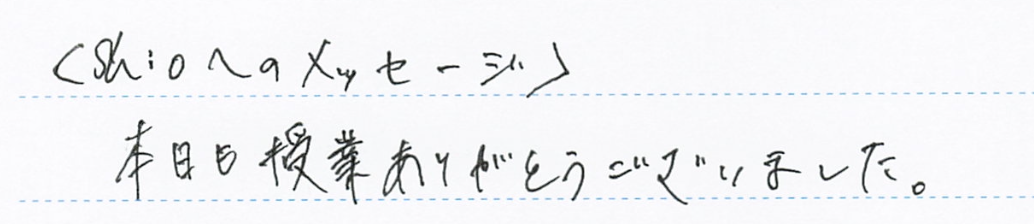 <Shioへのメッセージ>
本日も授業ありがとうございました。